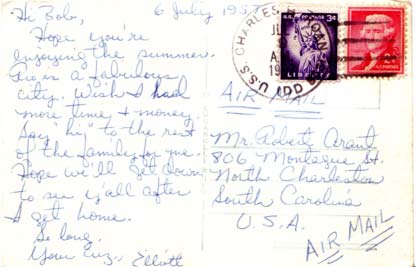 6 July 1957
Hi Bob,
Hope you're
enjoying the summer.
is a fabulous
city. Wish I had
more time & money.
Say "hi" to the rest
of the family for me.
Hope we'll get down
to see y'all after
I get home.
So long.
Your Cuz,
Elliott
U.S.S. CHARLES R.
DD
JUL
A.M.
U.S. POSTAGE 3¢
LIBERTY
AIR MAIL
Mr. Robert Arant
806 Montague St.
North Charleston
South Carolina
U.S.A.
AIR MAIL